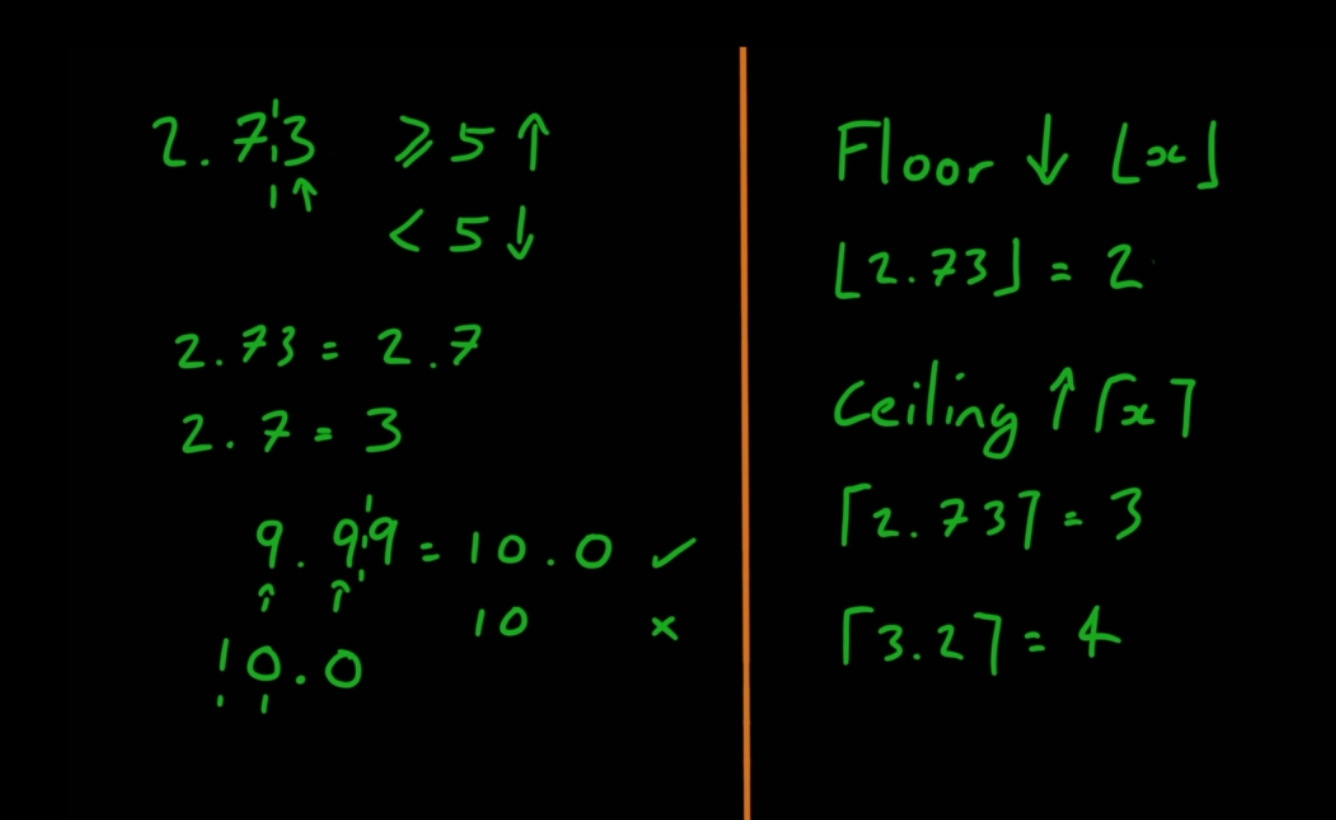 2.73 ⩾ 5 ↑
↑ < 5 ↓
2.73 = 2.7
2.7 = 3
9.99 = 10.0 ✓
10 ×
10.0
Floor ↓ ⌊x⌋
⌊2.73⌋ = 2
Ceiling ↑ ⌈x⌉
⌈2.73⌉ = 3
⌈3.2⌉ = 4